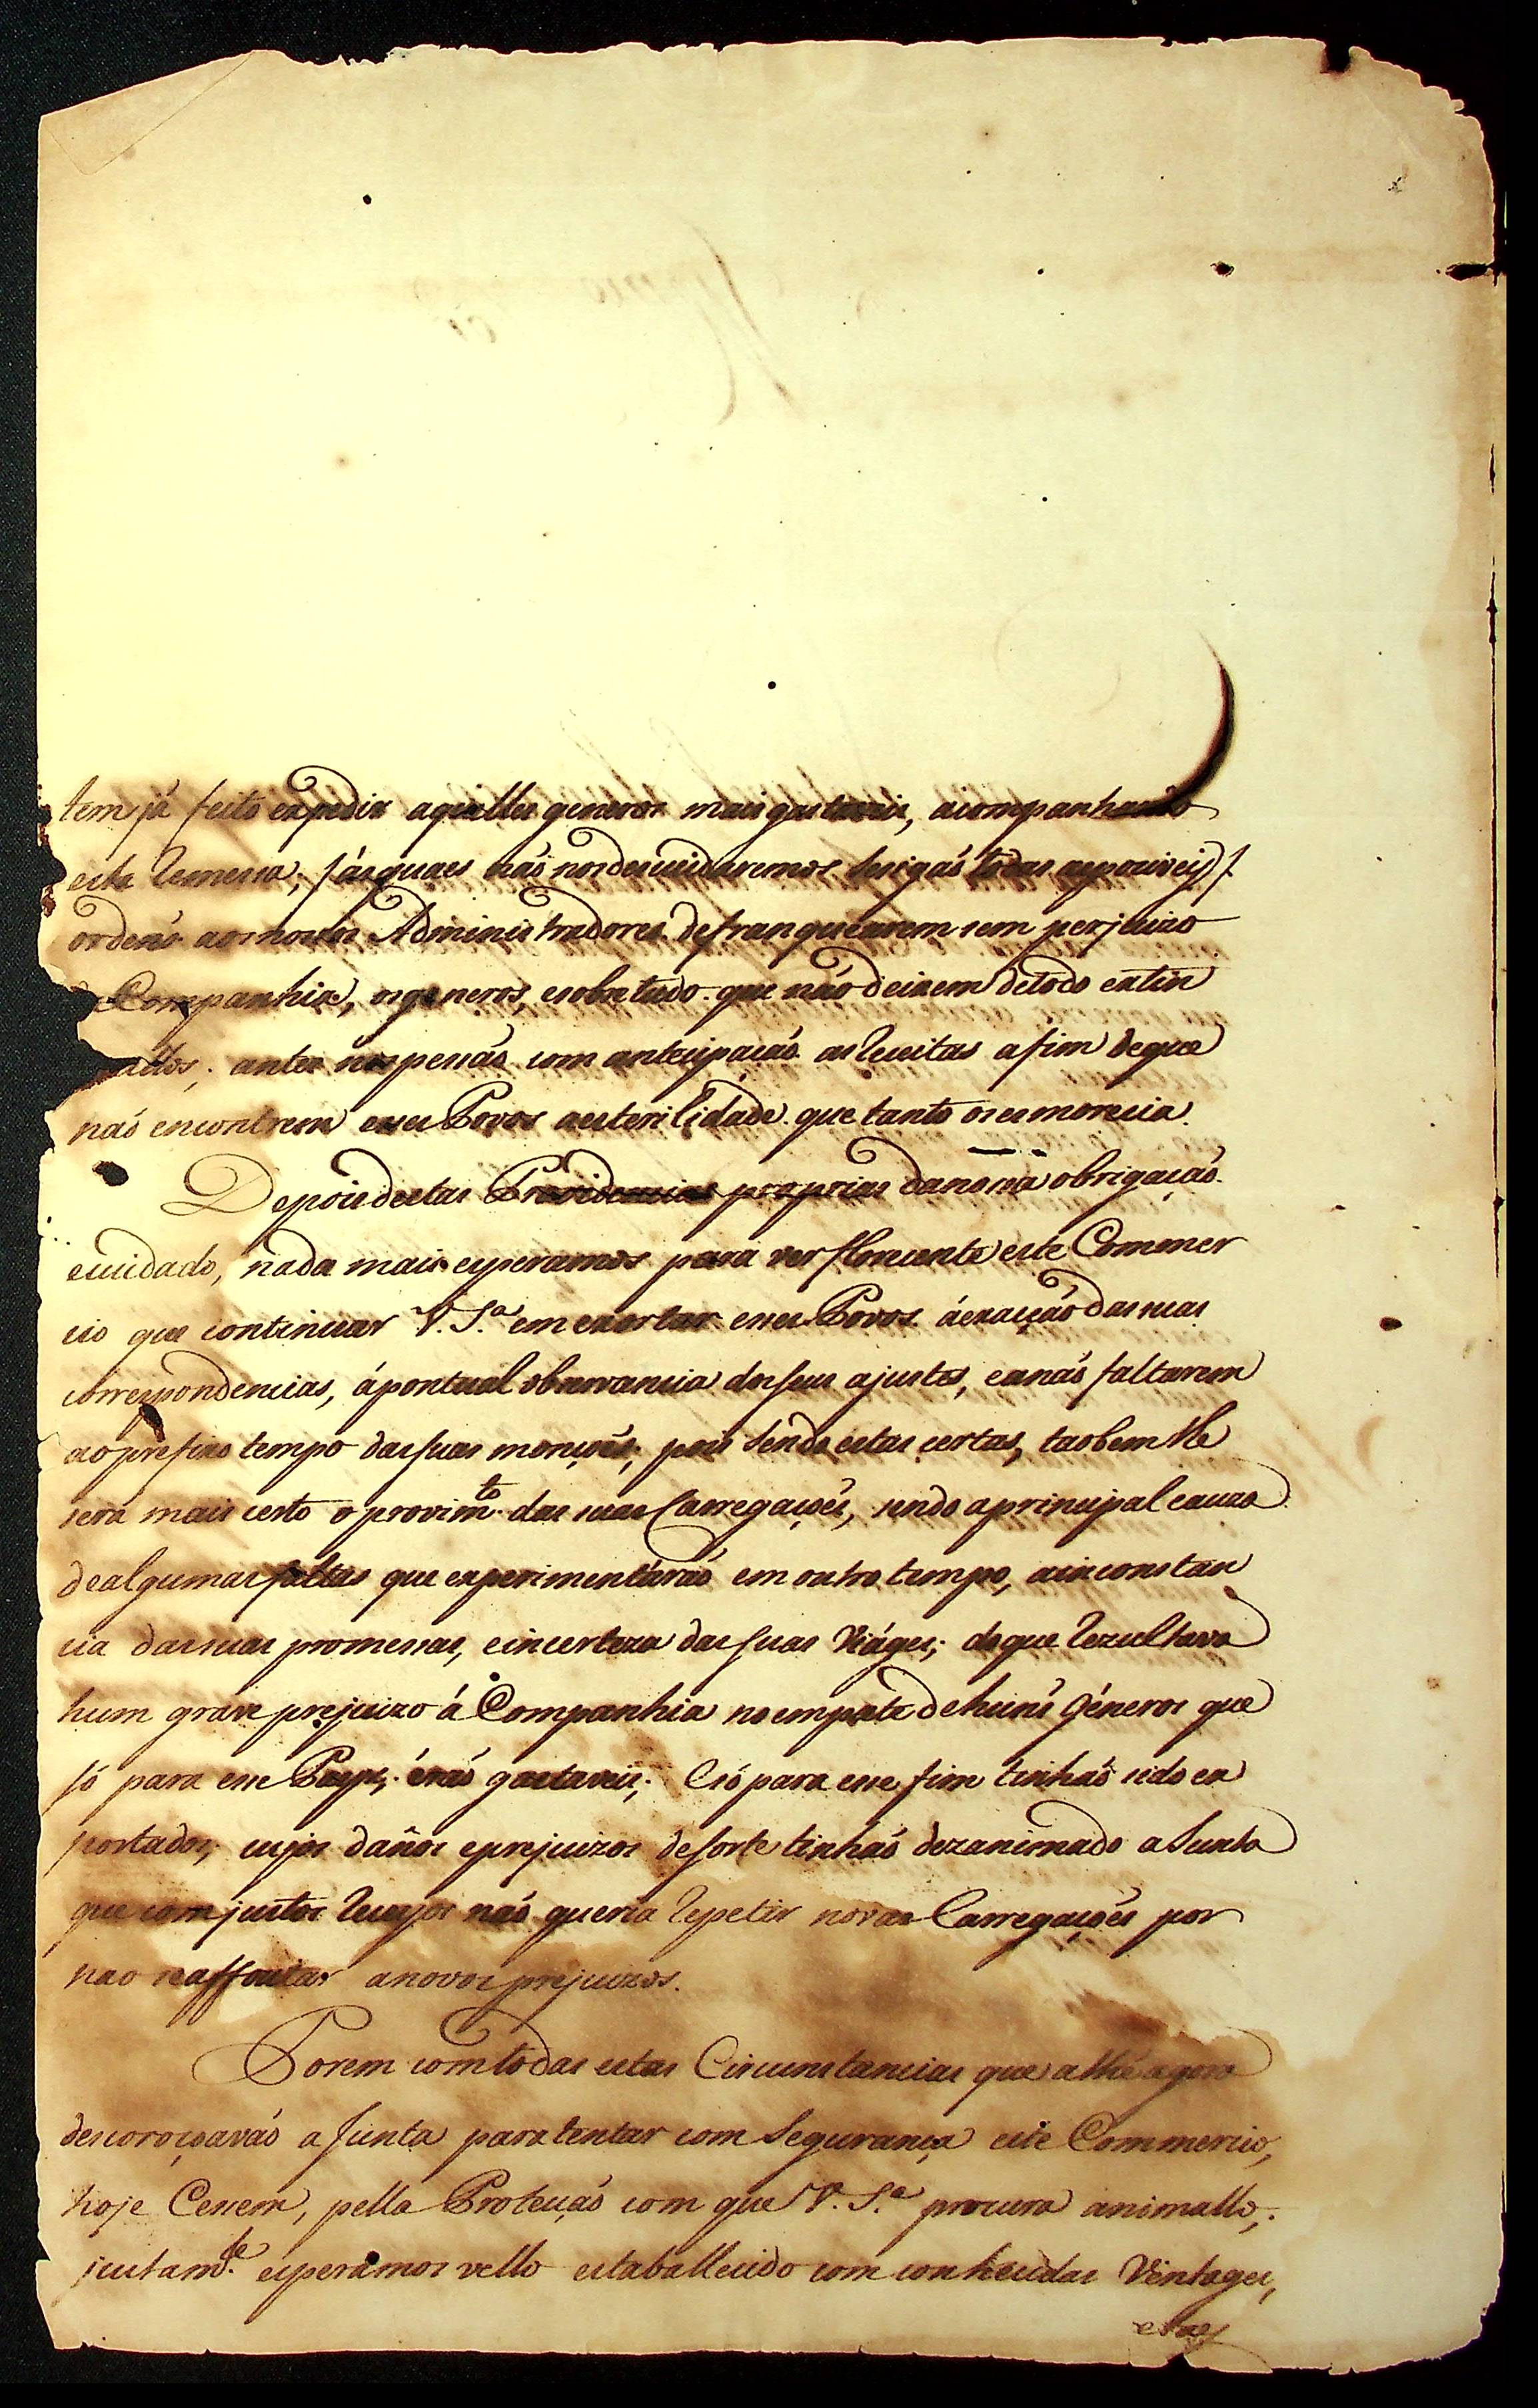 tem já feito expedir aquelles generos mais gastaveis, acompanhando
esta Remessa; (ás quaes nás nos descuidaremos sirigás todas as posiveis)
ordens aos nossos Administradores de franquearem sem perjuizo
Companhia, os generos, e sobre tudo que não deixem de todo extin
antes nos pessás com antecipaçás as Receitas a fim de que
nás encontrem esses Povos a esterilidade que tanto os esmorecia.
Depois destas Providencias proprias da nossa obrigaçás
e cuidado, nada mais esperamos para ver florecente este Commer
cio que continuar V. S.ª em exortar esses Povos á exacção das suas
correspondencias, á pontual observancia dos seus ajustes, e a nás faltarem
ao prefixo tempo das suas monções; pois sendo estas certas, taobem lhe
será mais certo o provim.to das suas Carregaçoés, sendo a principal cauza
de algumas faltas que experimentárás em outro tempo, a inconstan
cia das suas promessas, e incerteza das suas Viáges; de que Rezultava
hum grave prejuizo á Companhia no empate de huns Géneros que
só para esse Payz, érás gastaveis; e só para esse fim tinhás sido ex
portados; cujos dãnos e prejuizos de sorte tinhás dezanimado a Junta
que com justos Receyos nás queria Repetir novas Carregaçoés por
nao se affoutar a novos prejuizos.
Porem com todas estas Circunstancias que athé agora
descoroçoavás a Junta para tentar com Segurança este Commercio,
hoje Cessem, pella Protecçás com que V. S.ª procura animallo;
justam.te esperamos vello estabellecido com conhecidas Vintages,